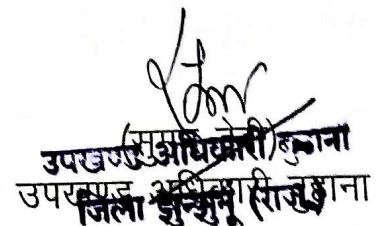 उपखण्ड अधिकारी बुहाना
उपखण्ड अधिकारी बुहाना
जिला झुन्झुनू (राज०)